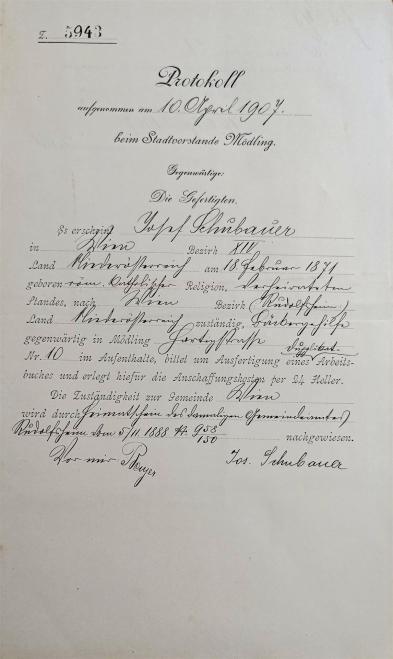 Z. 5943
Protokoll
aufgenommen am 10. April 1907.
beim Stadtvorstande Mödling.
Gegenwärtige:
Die Gefertigten.
Es erscheint Josef Schubauer
in Wien Bezirk XIV
Land Niederösterreich am 18. Februar 1871
geboren röm. Catholischer Religion, verheirateten
Standes, nach Wien Bezirk (Rudolfsheim)
Land Niederösterreich zuständig, Bäckergehilfe
gegenwärtig in Mödling Hartigstrasse Duplikat-
Nr. 10 im Aufenthalte, bittet um Ausfertigung eines Arbeits-
buches und erlegt hiefür die Anschaffungskosten per 24 Heller.
Die Zuständigkeit zur Gemeinde Wien
wird durch Heimatschein des damaligen Gemeindeamtes
Rudolfsheim vom 5/11 1888 958/150 nachgewiesen.
Vor mir Jos. Schubauer